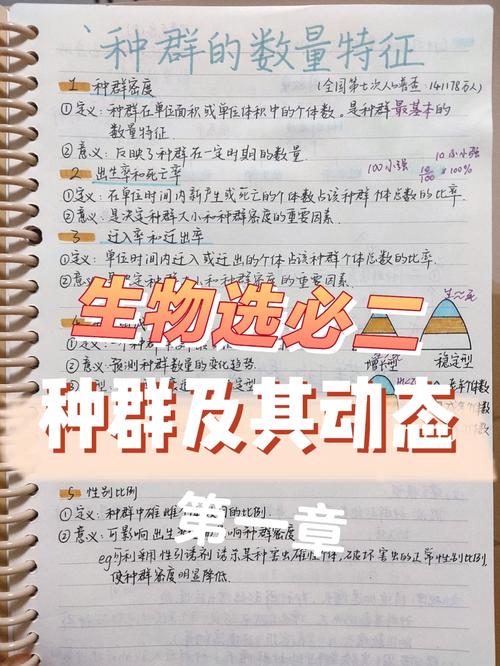 种群的数量特征
1 种群密度 (全国第七次人口普查:141178万人)
①定义:种群在单位面积或单位体积中的个体数。是种群最基本的
数量特征
②意义:反映了种群在一定时期的数量
100小强 10小小强
10/100 × 100%
2 出生率和死亡率
①定义:在单位时间内新产生或死亡的个体数占该种群个体总数的比率.
②意义:是决定种群大小和种群密度的重要因素.
3 迁入率和迁出率
①定义:单位时间内迁入或迁出的个体占该种群个体总数的比率.
②意义:是决定种群大小和种群密度的重要因素
生物选必二
①定义:一个种
增长型 稳定型
②意义:预测种群数量的变化趋势
种群及其动态
第一章
5 性别比例
①定义:种群中雄雌个体数目的比例.
②意义:可影响出生率 影响种群密度
eg可利用性引诱剂诱杀某种害虫雄性个体,破坏害虫的正常性别比例,
使种群密度明显降低.